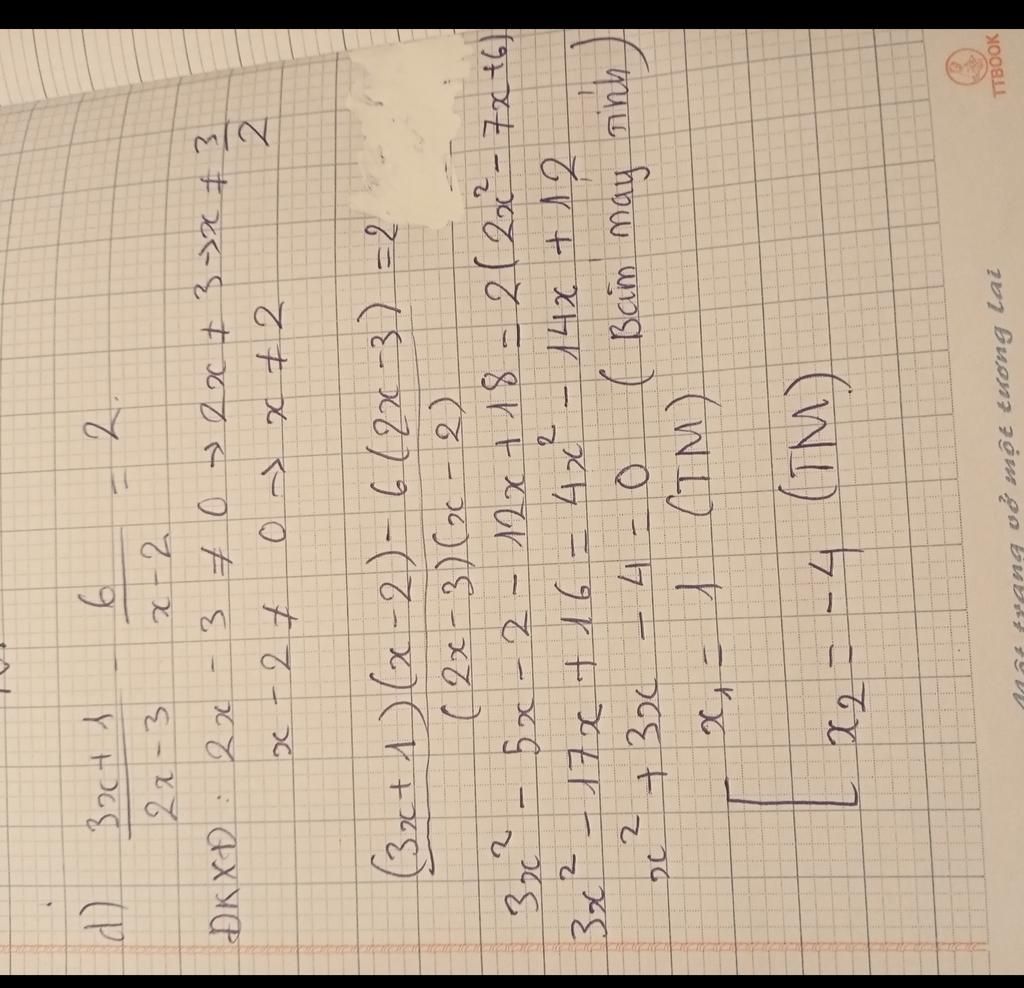 d) (3x+1)/(2x-3) - 6/(x-2) = 2.
ĐKXĐ: 2x - 3 ≠ 0 → 2x ≠ 3 → x ≠ 3/2
x - 2 ≠ 0 → x ≠ 2
((3x+1)(x-2) - 6(2x-3))/((2x-3)(x-2)) = 2
3x² - 5x - 2 - 12x + 18 = 2(2x² - 7x + 6)
3x² - 17x + 16 = 4x² - 14x + 12
x² + 3x - 4 = 0 (Bấm máy tính)
[ x₁ = 1 (TM)
x₂ = -4 (TM)
Một trang vở một tương lai
TTBOOK